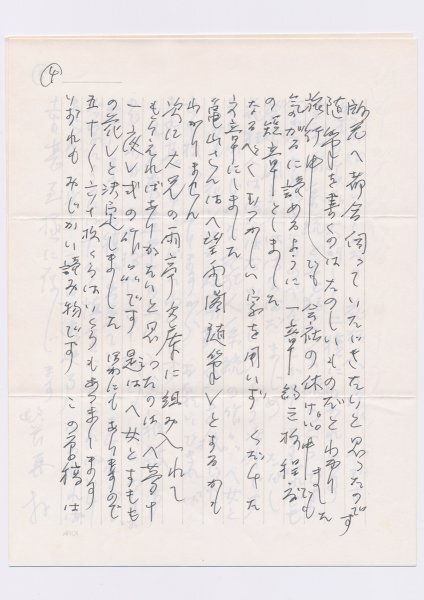 ④
於兄へ都合伺っていたにきたいと思ったのです
随筆を書くのはたのしいものだとわかりました
旅行中でも 会社の休けい中でも
気がるに読めるように 一章 約三枚程度
の短章としました
なるべくむつかしい字を用いずくだけた
文章にしました
亀山さんは〈望雲閣随筆〉とするかも
わかりません
次に大兄の雨亭文庫に組み入れて
もらえればありがたいと思ったのは〈夢十
一夜〉式の作品です 是は〈女とすもも
の花〉と決定しました 外にもありますので
五十〜六十枚くらいはいくらもあつまります
いずれもみじかい読み物です この原稿は